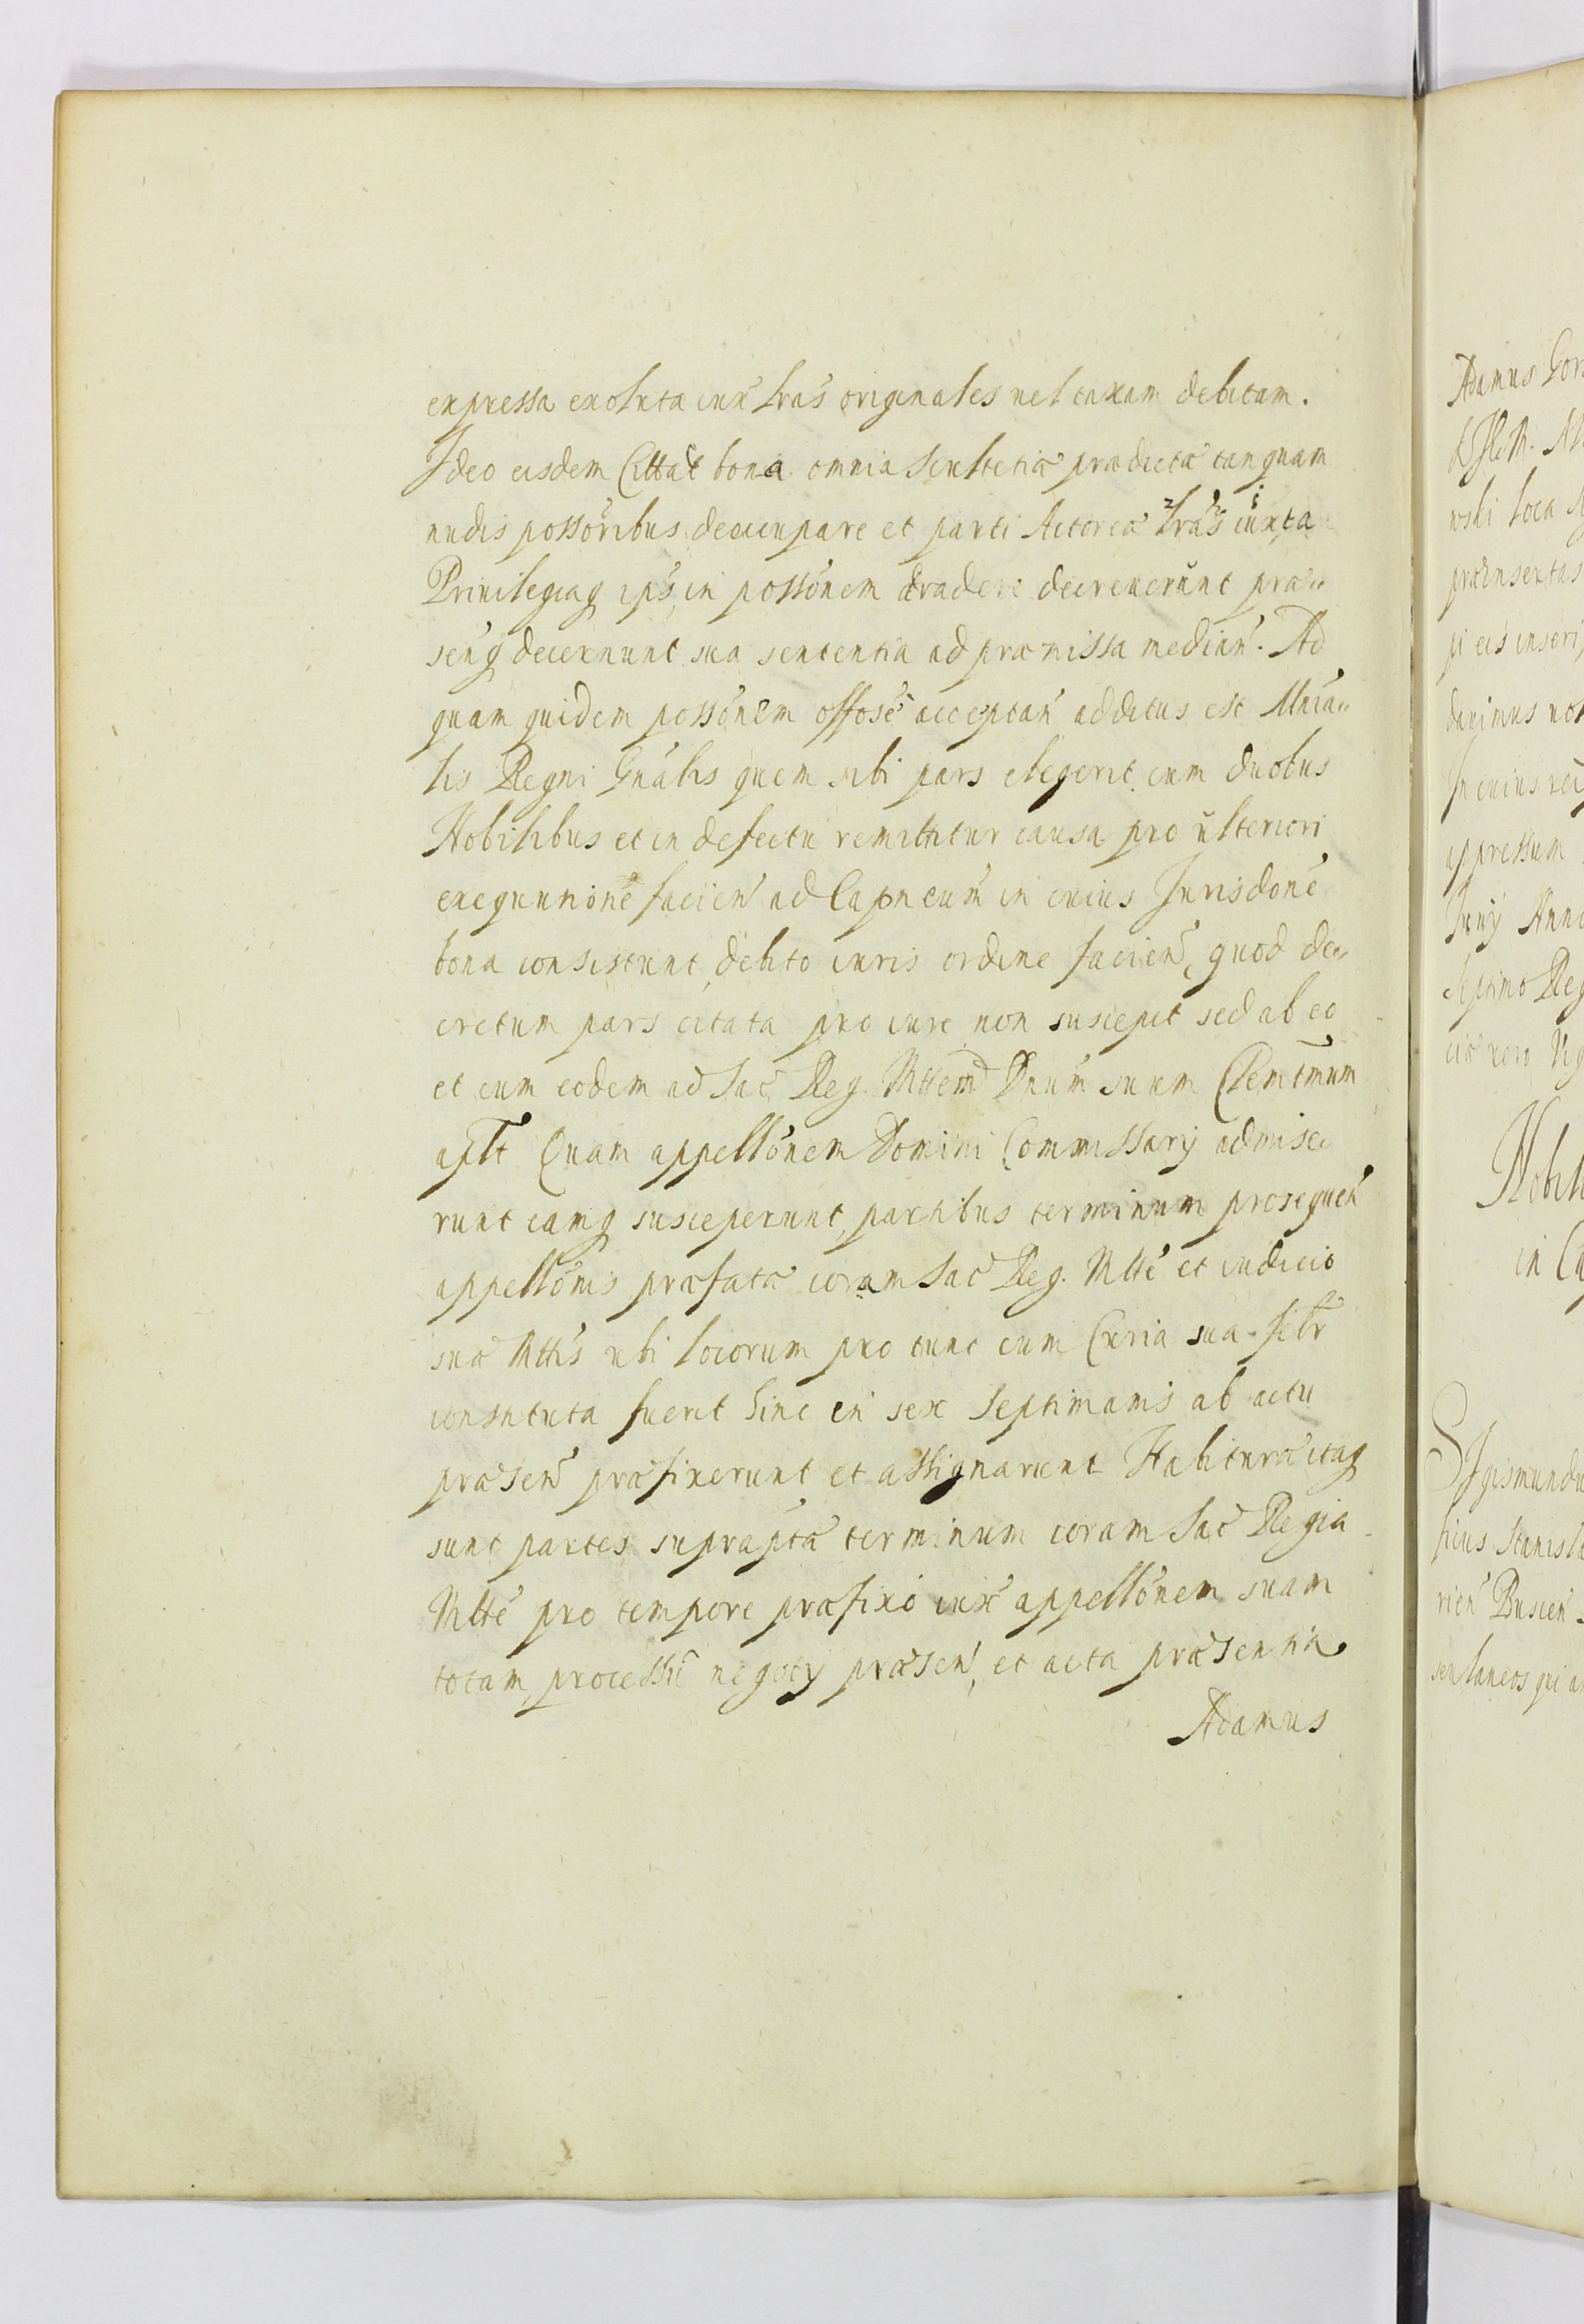 expressa exoluta iux lras originales vel taxam debitam.
Ideo eisdem Cittat bona omnia Scultetia prædicta tanquam
nudis possoribus deoccupare et parti Actoreæ lras iuxta
Privilegiaq ips in possonem tradere decreverunt præ„
senq decernunt sua sententia ad præmissa median. Ad
quam quidem possonem offose acceptan additus est Mnia„
lis Regni Gnalis quem sibi pars elegerit cum duobus
Nobilibus et in defectu remittitur causa pro ulteriori
exequutione facien ad Capneum in cuius Jurisdone
bona consistunt, debito iuris ordine facien, quod de„
cretum pars citata pro iure non suscepit sed ab eo
et cum eodem ad Sac Reg. Mttem Dnum suum Clemtmum
aplt Quam appellonem Domini Commissarij admise„
runt eamq susceperunt, partibus terminum prosequen
appellonis præfatæ coram Sac Reg. Mtte et iudicio
suæ Mttis ubi locorum pro tunc cum Curia sua felr
constituta fuerit hinc in sex septimanis ab actu
præsen præfixerunt et assignarunt Habituræ itaq
sunt partes suprapta terminum coram Sac Regia
Mtte pro tempore præfixo iux appellonem suam
totam, processu negotij præsen, et acta præsentia
Adamus
Adamus Gor
wski loca
præinsertas
pi eis inseri
davimus
In cuius rei
appressum
Junij Anno
Septimo Reg
ciæ vero
Nobili
in Ca
SIgismundu
ficus Stanisla
rien Buscen
seu laneos qui